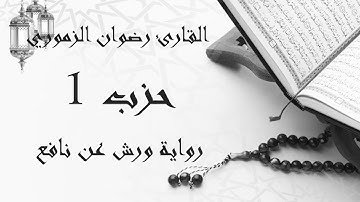 القارئ رضوان الزموري
حزب 1
رواية ورش عن نافع